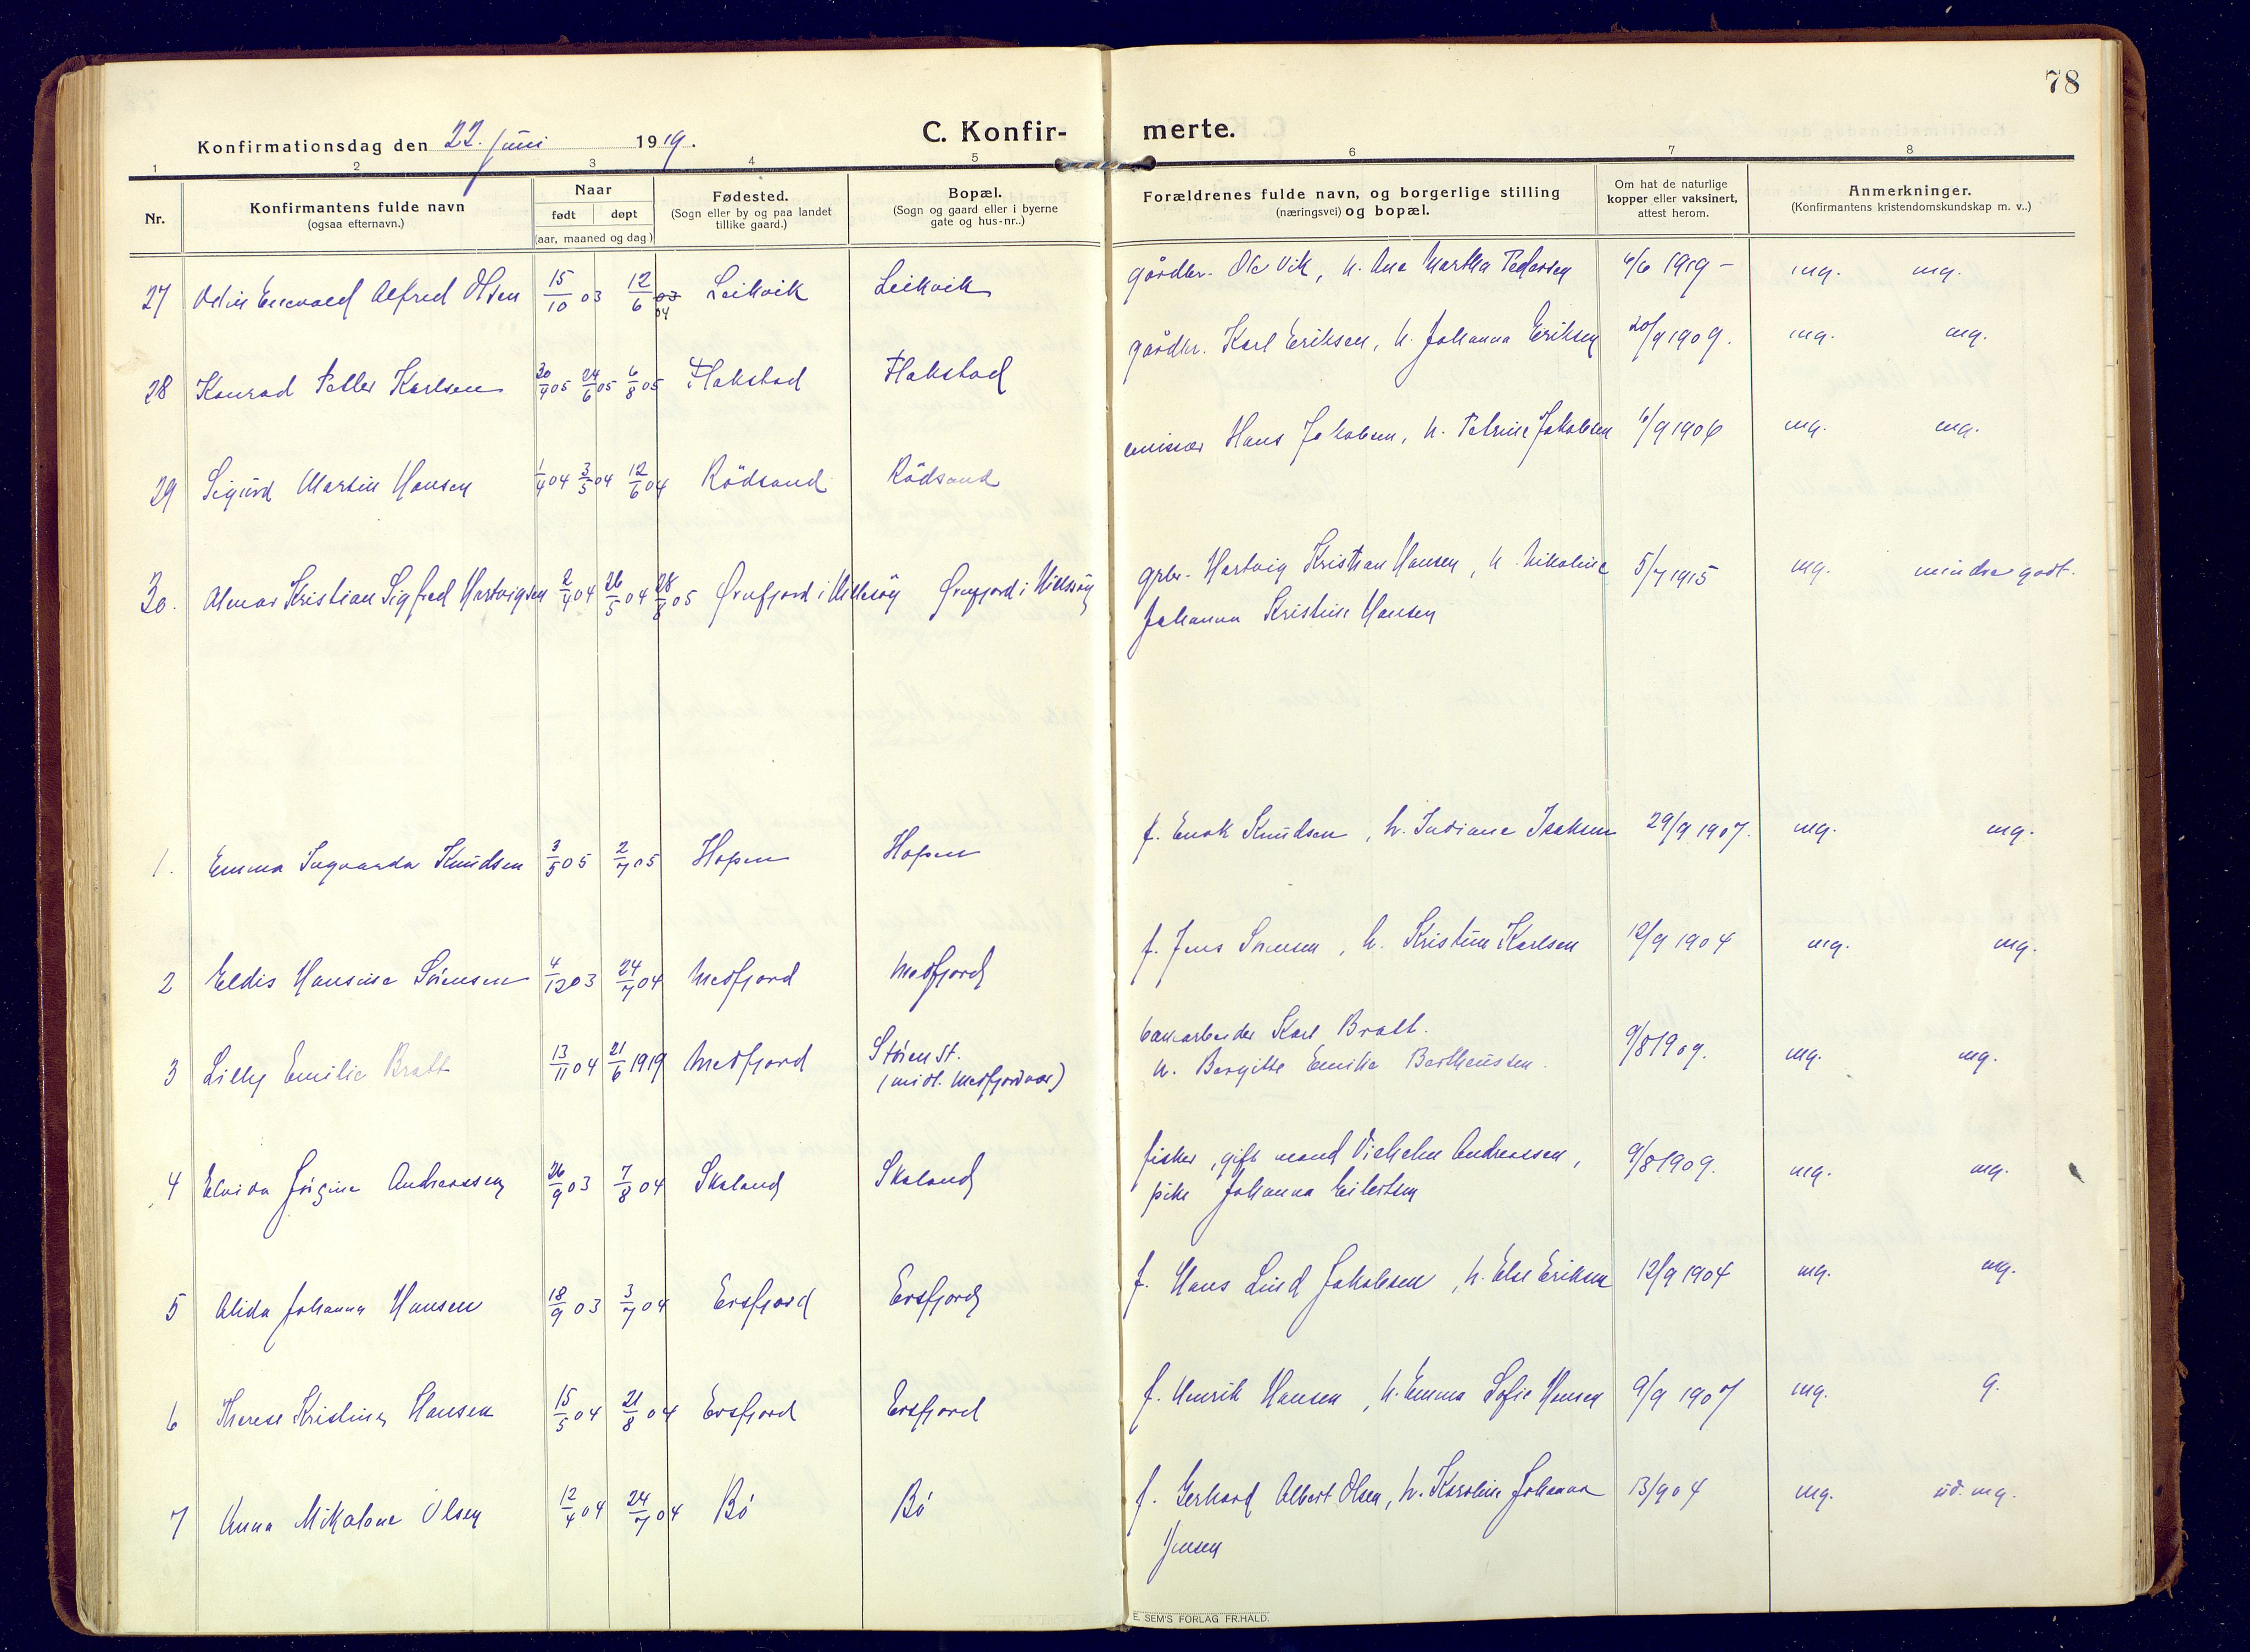 78
Konfirmationsdag den 22. juni 1919.
C. Konfir- merte.
1 2 3 4 5 6 7 8
Nr.
Konfirmantens fulde navn
(ogsaa efternavn.)
Naar
født døpt
(aar, maaned og dag)
Fødested.
(Sogn eller by og paa landet
tillike gaard.)
Bopæl.
(Sogn og gaard eller i byerne
gate og hus-nr..)
Forældrenes fulde navn, og borgerlige stilling
(næringsvei) og bopæl.
Om hat de naturlige
kopper eller vaksinert,
attest herom.
Anmerkninger.
(Konfirmantens kristendomskundskap m. v..)
27 Odin Alfred Olsen 15/10 03 12/6 03 04 Leikvik Leikvik gårdbr. Ole Vik, h. Ane Martha Pedersen 6/6 1919 – mg. mg.
28 Konrad Petter Karlsen 30/4 05 24/6 05 6/8 05 Flakstad Flakstad gårdbr. Karl Eriksen, h. Johanna Eriksen 20/9 1909. mg. mg.
29 Sigurd Martin Hansen 1/4 04 3/5 04 12/6 04 Rödsand Rödsand emissær Hans Jakobsen, h. Petrine Jakobsen /9 1906 mg. mg.
30. Almar Kristian Sigfred Hartvigsen 2/4 04 26/5 04 28/8 05 Ørnfjord i Hillesøy Ørnfjord i Hillesøy gbr. Hartvig Kristian Hansen, h. Nikoline 5/7 1915 mg. mindre godt.
Johanna Kristine Hansen
1. Emma Ingvarda Knudsen 3/5 05 2/7 05 Hopen Hopen f. Enok Knudsen, h. Indiane Isaksen 29/9 1907. mg. mg.
2 Eldis Hansine Sørensen 4/12 03 24/7 04 Medfjord Medfjord f. Jens Sørensen, h. Kristine Karlsen 12/9 1904 mg. mg.
3 Lilly Emilie Bratt 13/11 04 21/6 1919 Medfjord Støren st.
(midl. Medfjordvær)
banearbeider Karl Bratt.
h. Bergitte Emilie Bertheussen. 9/8 1909. mg. mg.
4 Elvida Jørgine Andreassen 26/9 03 7/8 04 Skaland Skaland fisker, gift mand Vilhelm Andreassen,
pike Johanna Eilertsen 9/8 1909. mg. mg.
5 Alida Johanna Hansen 18/9 03 3/7 04 Ersfjord Ersfjord f. Hans Lind Jakobsen, h. Else Eriksen 12/9 1904 mg. mg.
6 Therese Kristine Hansen 15/5 04 21/8 04 Ersfjord Ersfjord f. Henrik Hansen, h. Emma Sofie Hansen 9/9 1907 mg. g.
7 Anna Nikoline Olsen 12/4 04 24/7 04 Bø Bø f. Gerhard Albert Olsen, h. Karoline Johanna 13/9 04 mg. ud. mg.
Jensen
E. SEM'S FORLAG FR.HALD.